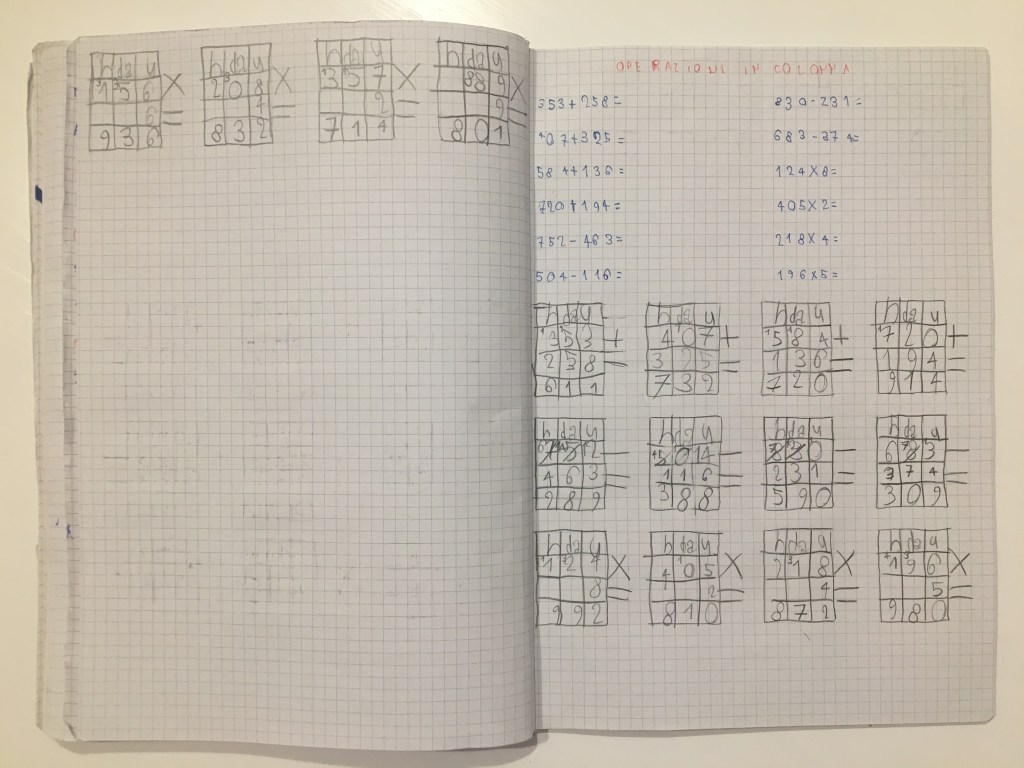 h da u h da u h da u h da u
1 5 6 × 2 0 8 × 3 5 7 × 8 9 ×
6 = 4 = 2 = 9 =
9 3 6 8 3 2 7 1 4 8 0 1
OPERAZIONI IN COLONNA
353+258= 830-231=
407+325= 683-374=
584+136= 124×8=
720+194= 405×2=
752-463= 218×4=
504-116= 196×5=
h da u h da u h da u h da u
3 5 3 + 4 0 7 + 5 8 4 + 7 2 0 +
2 5 8 = 3 2 5 = 1 3 6 = 1 9 4 =
6 1 1 7 3 2 7 2 0 9 1 4
h da u h da u h da u h da u
2 - 5 0 14 - 8 3 0 - 6 8 3 -
4 6 3 = 1 1 6 = 2 3 1 = 3 7 4 =
2 8 9 3 8 8 5 9 0 3 0 9
h da u h da u h da u h da u
1 2 4 × 4 0 5 × 2 1 8 × 1 9 6 ×
8 = 2 = 4 = 5 =
9 9 2 8 1 0 8 7 2 9 8 0